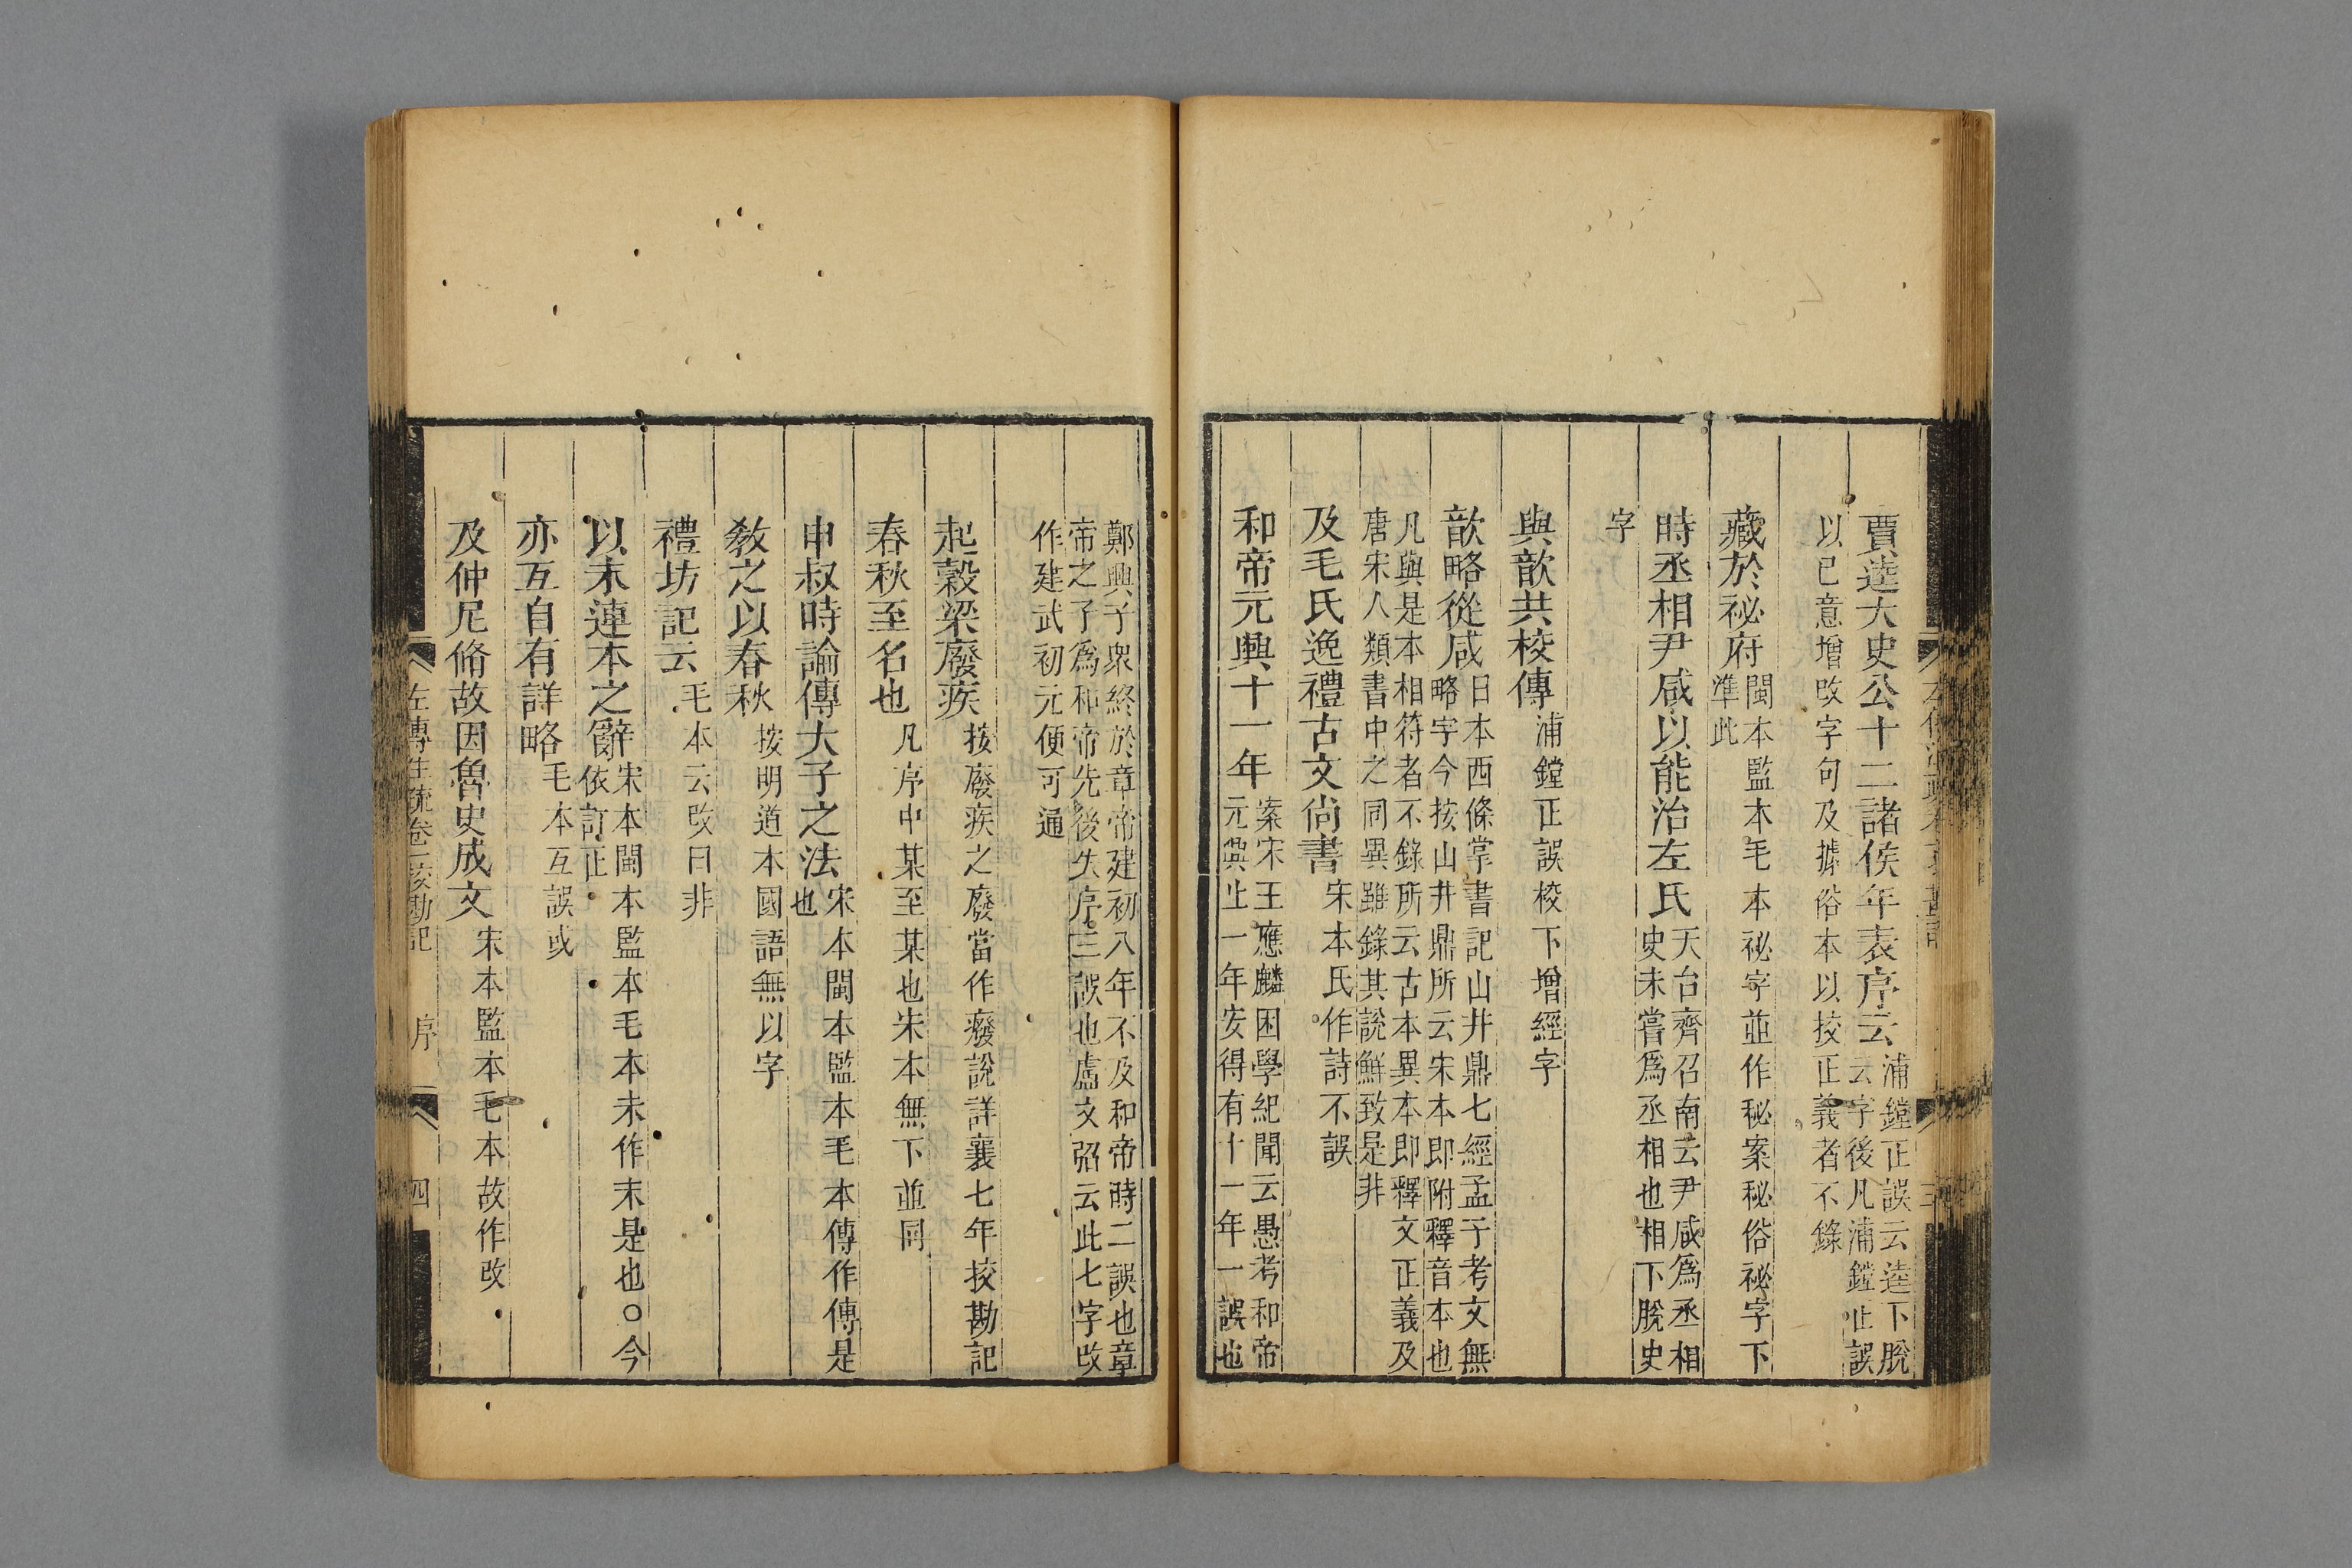 賈逵大史公十二諸侯年表序云浦鏜正誤云逵下脫云字後凡浦鏜正誤
以已意增改字句及據俗本以挍正義者不錄
藏於祕府閩本監本毛本祕字並作秘案秘俗祕字下準此
時丞相尹咸以能治左氏天台齊召南云尹咸爲丞相史未嘗爲丞相也相下脫史
字
與歆共校傳浦鏜正誤校下增經字
歆略從咸日本西條掌書記山井鼎七經孟子考文無略字今按山井鼎所云宋本即附釋音本也
凡與是本相符者不錄所云古本異本即釋文正義及唐宋人類書中之同異雖錄其說鮮致是非
及毛氏逸禮古文尚書宋本氏作詩不誤
和帝元興十一年案宋王應麟困學紀聞云愚考和帝元興止一年安得有十一年一誤也
鄭興子衆終於章帝建初八年不及和帝時二誤也章帝之子爲和帝先後失序三誤也盧文弨云此七字改
作建武初元便可通
起穀梁廢疾按廢疾之廢當作癈說詳襄七年挍勘記
春秋至名也凡序中某至某也宋本無下並同
申叔時論傳大子之法宋本閩本監本毛本傳作傅是也
敎之以春秋按明道本國語無以字
禮坊記云毛本云改曰非
以末連本之辭宋本閩本監本毛本未作末是也○今依訂正
亦互自有詳略毛本互誤或
及仲尼脩故因魯史成文宋本監本毛本故作改
左傳注疏卷一挍勘記 序 四